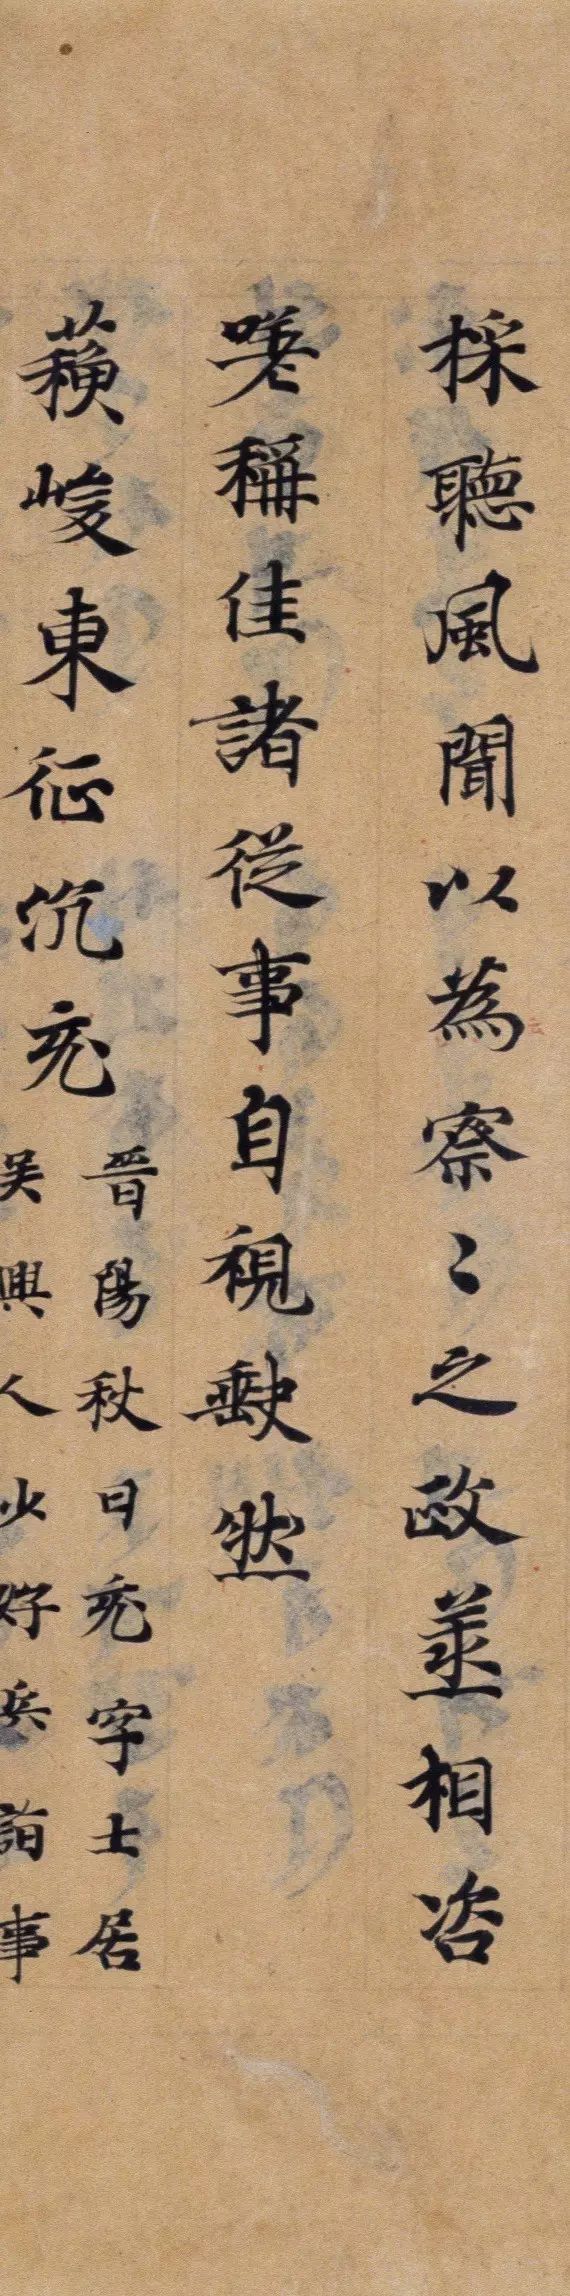 採聽風聞以為察〻之政丞相咨
嗟稱佳諸從事自視缺然
蘇峻東征沉充
晋陽秋曰充字士居
吴興人少好兵諂事